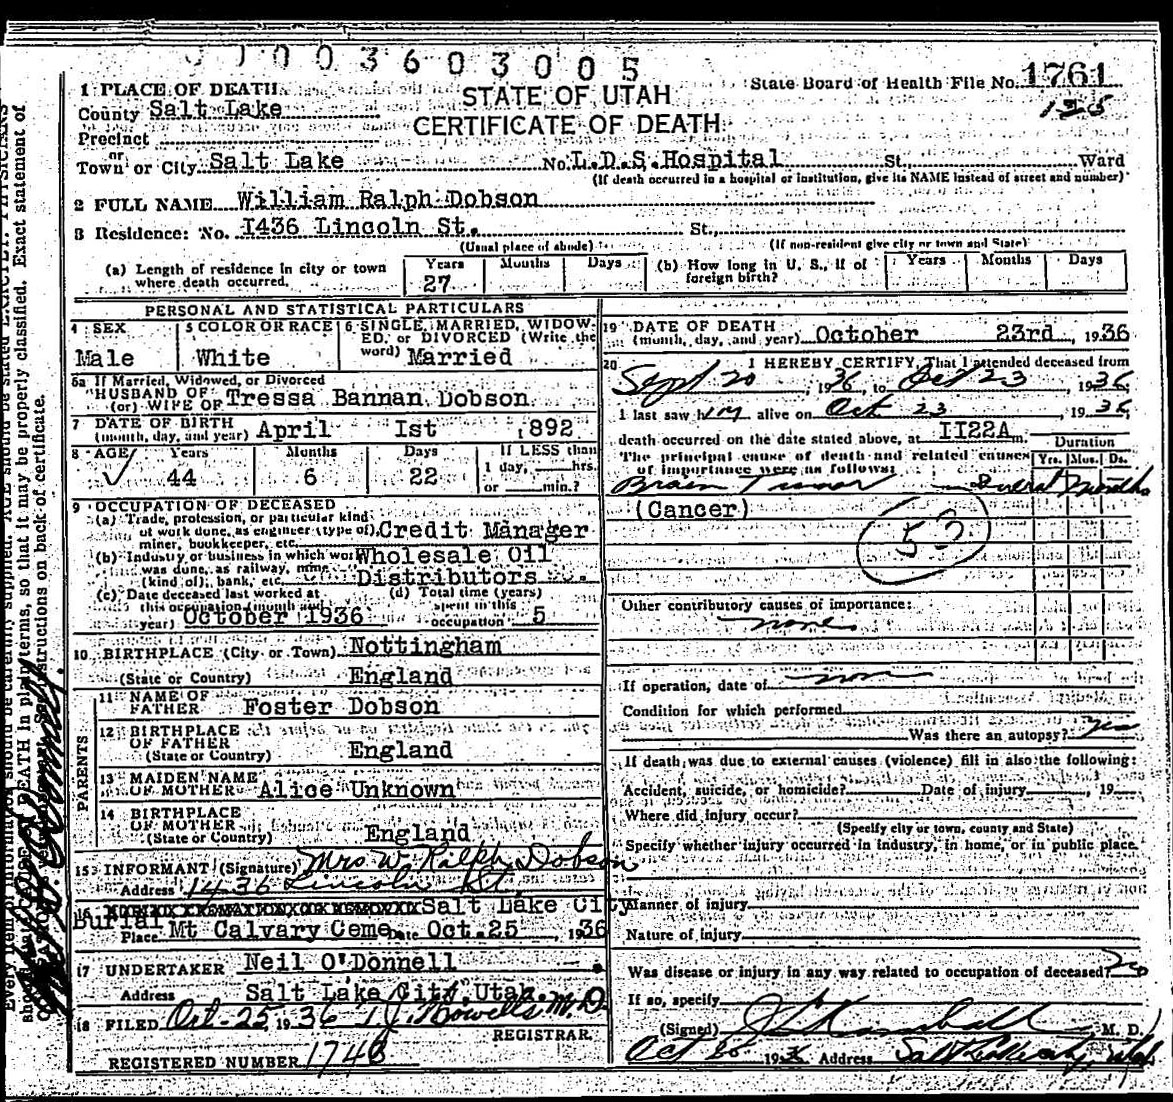 0003603005
State Board of Health File No. 1761
125
STATE OF UTAH
CERTIFICATE OF DEATH
1 PLACE OF DEATH
County Salt Lake
Precinct
or
Town or City Salt Lake No. L.D.S. Hospital St. Ward
(If death occurred in a hospital or institution, give its NAME instead of street and number)
2 FULL NAME William Ralph Dobson
3 Residence: No. I436 Lincoln St. St.,
(Usual place of abode) (If non-resident give city or town and State)
(a) Length of residence in city or town where death occurred. Years 27 Months Days (b) How long in U. S., if of foreign birth? Years Months Days
PERSONAL AND STATISTICAL PARTICULARS
4 SEX Male
5 COLOR OR RACE White
6 SINGLE, MARRIED, WIDOWED, or DIVORCED (Write the word) Married
6a If Married, Widowed, or Divorced
HUSBAND OF
(or) WIFE OF Tressa Bannan Dobson
7 DATE OF BIRTH
(month, day, and year) April Ist 1892
8 AGE Years 44 Months 6 Days 22 If LESS than 1 day, hrs. or min.?
9 OCCUPATION OF DECEASED
(a) Trade, profession, or particular kind of work done, as engineer (type of), miner, bookkeeper, etc. Credit Manager
(b) Industry or business in which work was done, as railway, mine (kind of), bank, etc. Wholesale Oil Distributors
(c) Date deceased last worked at this occupation (month and year) October 1936
(d) Total time (years) spent in this occupation 5
10 BIRTHPLACE (City or Town) Nottingham
(State or Country) England
PARENTS
11 NAME OF FATHER Foster Dobson
12 BIRTHPLACE OF FATHER
(State or Country) England
13 MAIDEN NAME OF MOTHER Alice Unknown
14 BIRTHPLACE OF MOTHER
(State or Country) England
15 INFORMANT (Signature) Mrs W. Ralph Dobson
Address 1436 Lincoln St.
16 Burial Salt Lake City
Place Mt Calvary Ceme Date Oct. 25, 1936
17 UNDERTAKER Neil O'Donnell
Address Salt Lake City, Utah.
18 FILED Oct-25 1936 T J. Howells M.D.
REGISTRAR.
REGISTERED NUMBER 1748
19 DATE OF DEATH
(month, day, and year) October 23rd, 1936
20 I HEREBY CERTIFY, That I attended deceased from
Sept 20, 1936, to Oct 23, 1936,
I last saw him alive on Oct 23, 1936,
death occurred on the date stated above, at II22A m.
The principal cause of death and related causes of importance were as follows:
Duration
Yrs. Mos. Ds.
Brain Tumor Several Months
(Cancer)
53
Other contributory causes of importance:
none
If operation, date of none
Condition for which performed
Was there an autopsy? Yes
If death was due to external causes (violence) fill in also the following:
Accident, suicide, or homicide? Date of injury, 19
Where did injury occur?
(Specify city or town, county and State)
Specify whether injury occurred in industry, in home, or in public place.
Manner of injury
Nature of injury
Was disease or injury in any way related to occupation of deceased? no
If so, specify
(Signed) Kimball M. D.
Oct 1936 Address Salt Lake City, Utah
Exact statement of
so that it may be properly classified.
on back of certificate.